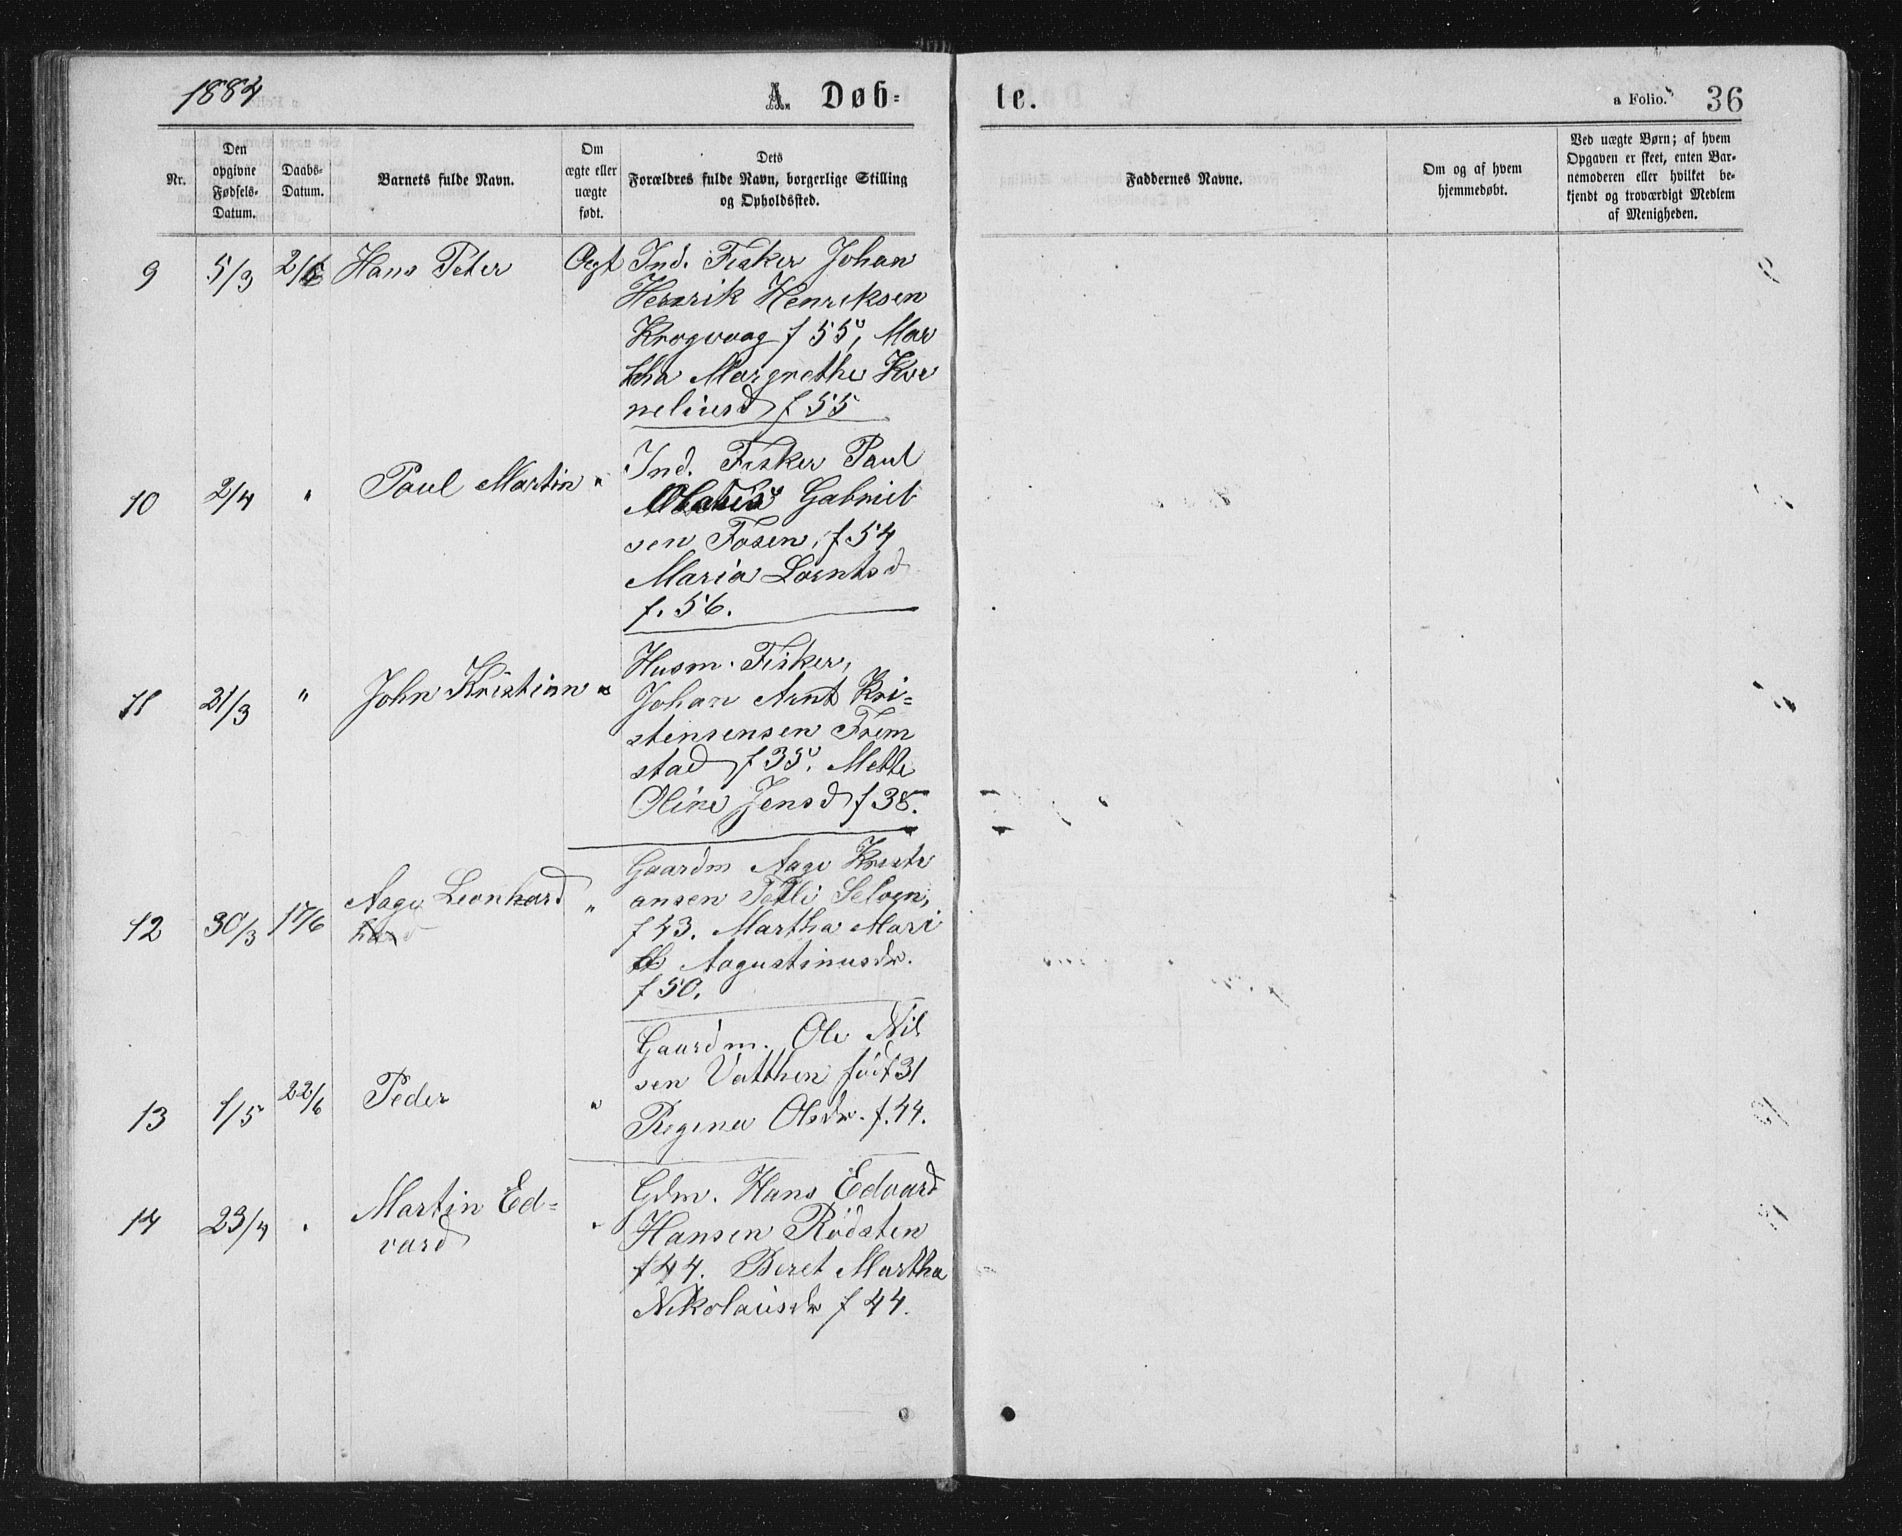 1884
A. Døb-
te.
a Folio.
36
Nr.
Den opgivne Fødsels-Datum.
Daabs-Datum.
Barnets fulde Navn.
Om ægte eller uægte født.
Dets
Forældres fulde Navn, borgerlige Stilling
og Opholdssted.
Faddernes Navne.
Om og af hvem
hjemmedøbt.
Ved uægte Børn; af hvem
Opgaven er skeet, enten Bar-
nemoderen eller hvilket be-
kjendt og troværdigt Medlem
af Menigheden.
9 5/3 2/6 Hans Peter Ægt Ind. Fisker Johan
Henrik Henriksen
Krogvaag f 55, Mar
tha Margrethe Kor
neliusd f 55
10 2/4 " Paul Martin " Ind. Fisker Paul
Gabriel
sen Fosen, f 54
Maria Lorntsd
f. 56.
11 21/3 " John Kristian " Husm. Fisker,
Johan Arnt Kri=
stensensen Frem
stad f 35. Mette
Oline Jensd f 38.
12 30/3 17/6 Aage Leonhard " Gaardm Aage Kristi
ansen Selven,
f 43. Martha Mari
Aagustinusdr.
f 50.
13 1/5 22/6 Peder " Gaardm. Ole Nil
sen Vatthen født 31
Regina Olsdr. f. 44.
14 23/4 " Martin Ed=
vard
" Gdm. Hans Edvard
Hansen Rødsten
f 44. Beret Martha
Nikolausdr f 44.